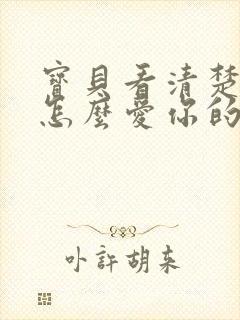 寶貝看清楚
怎麼愛你的
卟許胡来